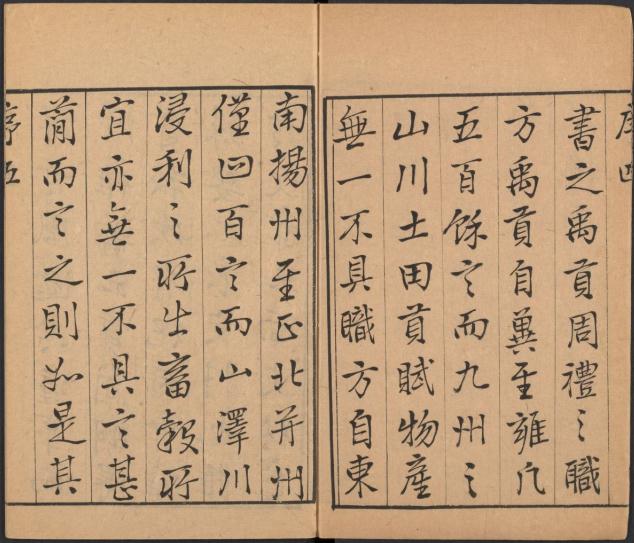 序四
書之禹貢周禮之職
方禹貢自冀至雍凡
五百餘言而九州之
山川土田貢賦物產
無一不具職方自東
南揚州至正北并州
僅四百言而山澤川
浸利之所出畜穀所
宜亦無一不具言甚
簡而言之則如是其
序五